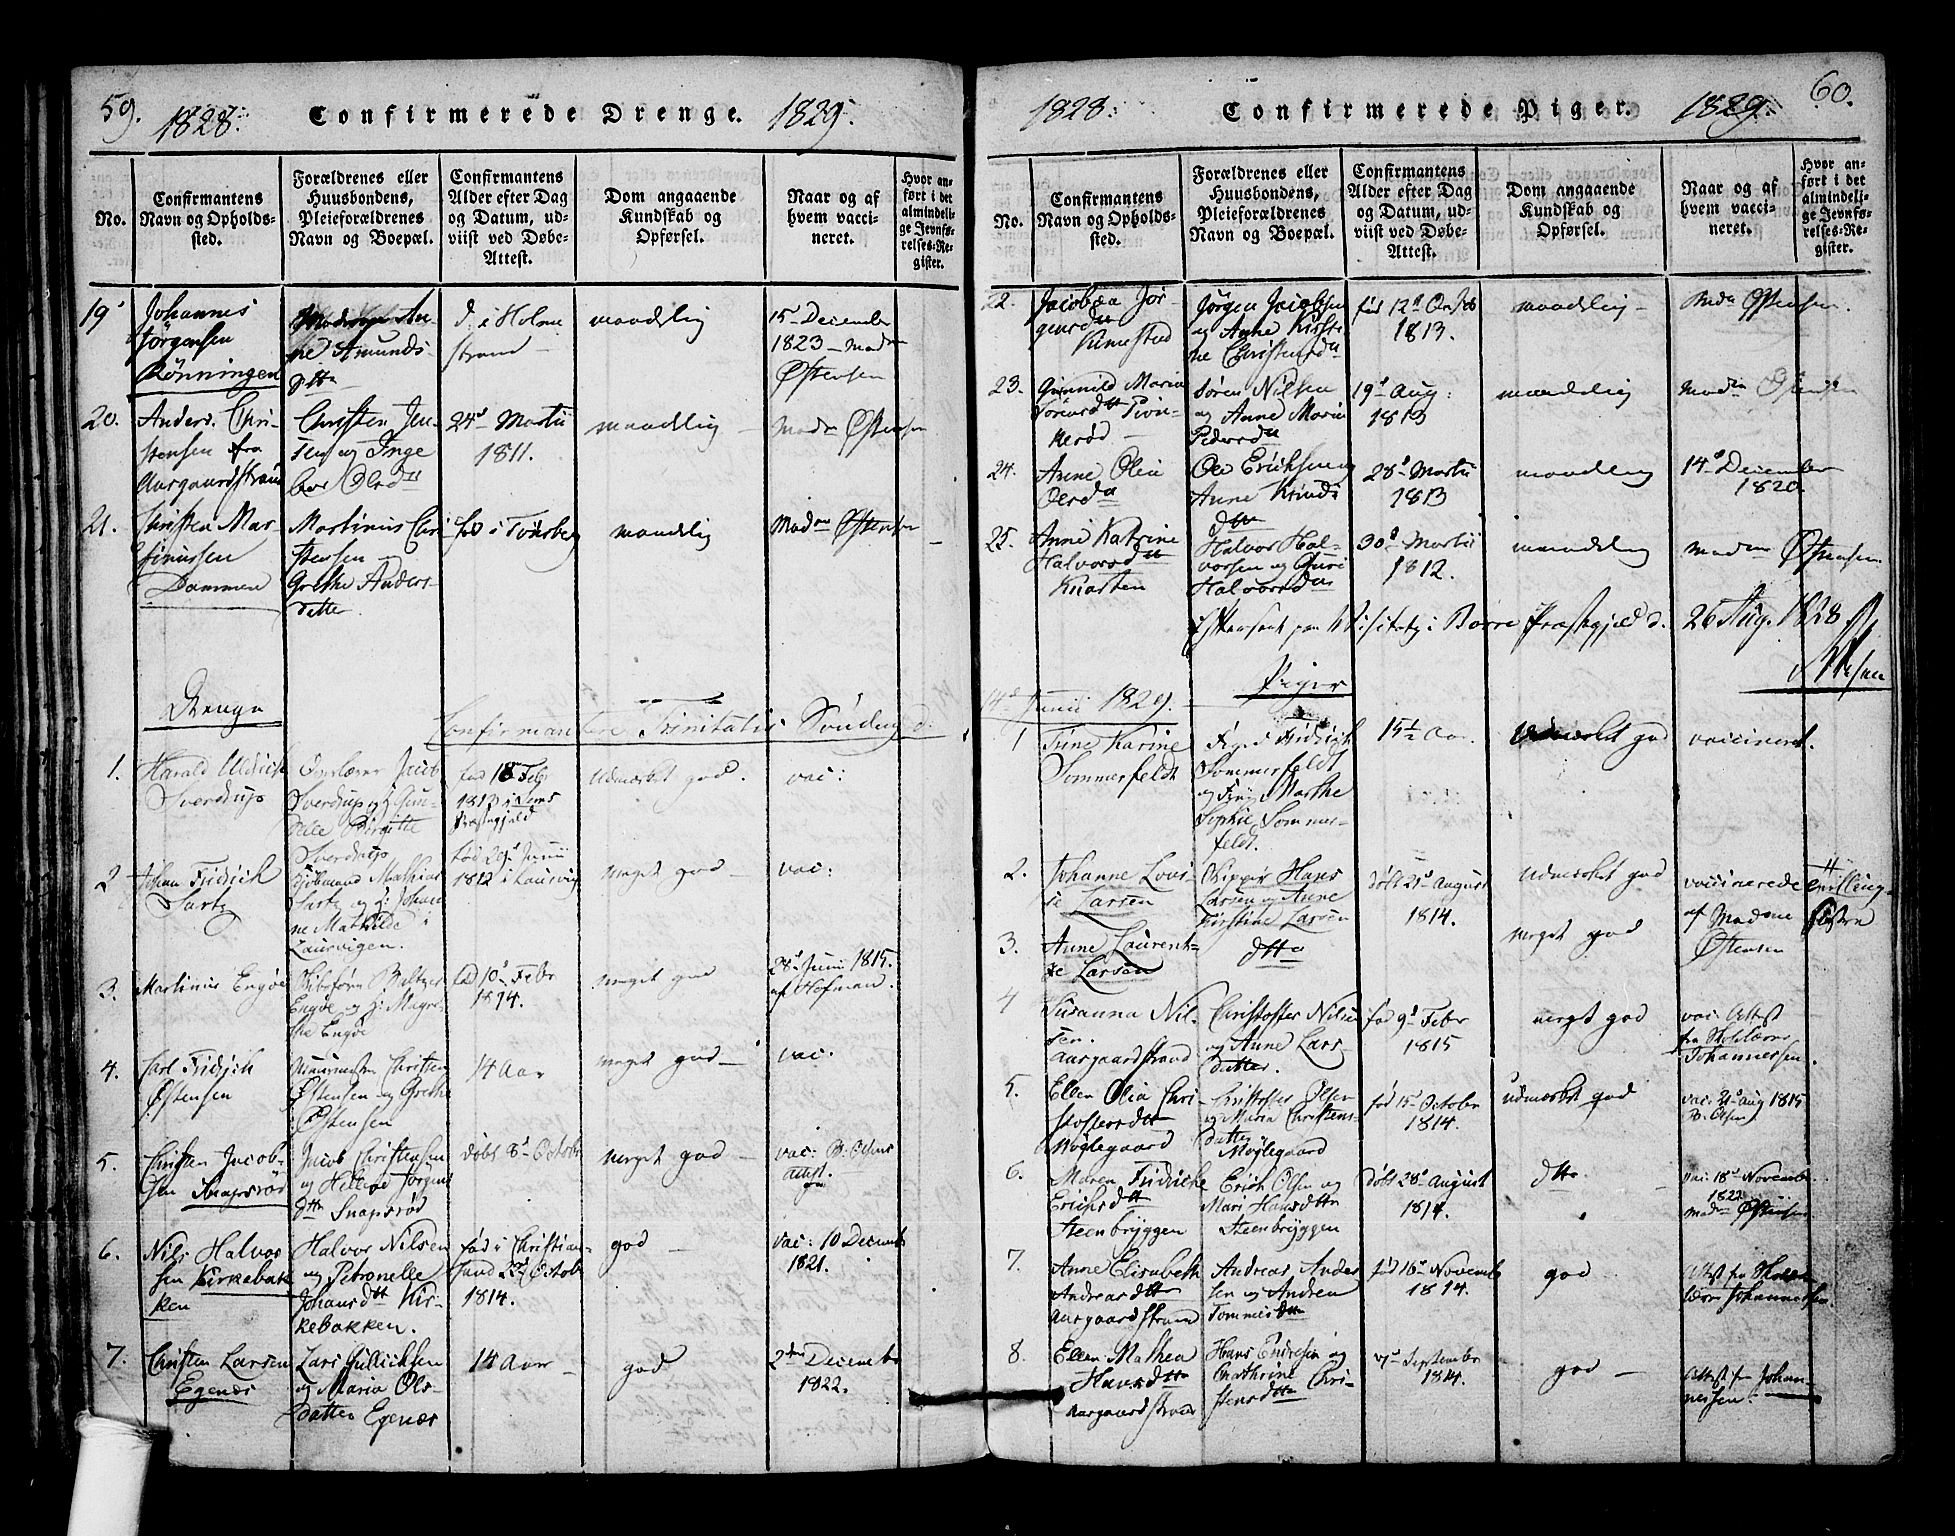 59.
1828.
Confirmerede Drenge.
1829.
No.
Confirmantens
Navn og Opholds-
sted.
Forældrenes eller
Huusbondens,
Pleieforældrenes
Navn og Boepæl.
Confirmantens
Alder efter Dag
og Datum, ud-
viist ved Døbe-
Attest.
Dom angaaende
Kundskab og
Opførsel.
Naar og af
hvem vacci-
neret.
Hvor an-
ført i det
almindeli-
ge Jevnfø-
relses-Re-
gister.
19
Johannes
Jørgensen
Rönningen
An-
ne Amunds
dttr
d. i Holme
strand
maadelig
15 December
1823 - Mad
Østensen
20.
Anders Chri-
stensen fra
Aasgaardstrand
Christen Jen-
sen og Inge
bor Olsd
24d Martii
1811.
maadelig
Mad Østensen
21.
Christen Mar-
tinussen
Dammen
Martinus Chri
stensen og
Grethe Anders-
datter
fød i Tönsberg
maadelig
Mad Østensen
Drenge
Confirmantere Trinitatis Søndag d.
1.
Harald Uldrich
Sverdrup
Overlærer Jacob
Sverdrup og H: Gun-
delle Birgitte
Sverdrup
fød 18 Febr
1813 i Sems
Præstegjeld
udmærket god.
vac:
2
Johan Fridrich
Sartz
Kjöbmand Mathias
Sartz og H: Johan
ne Mathilde i
Laurvigen.
fød 29d Junii
1812 i Laurvig
meget god
vac:
3.
Martinus Engöe
Skibsförer Baltzer
Engöe og H: Magre-
the Engöe
fød 10d Febr
1814.
meget god
28d Juni 1815.
af Hofman.
4.
Carl Fridrich
Østensen
Christen
Østensen og Grethe
Østensen
14 Aar
meget god
vac.
5.
Christen Jacob-
sen Snapsröd
Jacob Christensen
og Helleve Jörgens
dttr Snapsröd
döbt 8d Octobr
meget god
vac: B: Olsens
attest
6.
Nils Halvor
sen Kirkebak
ken
Halvor Nilsen
og Petronelle
Johansdtt Kir-
kebakken.
fød i Christian-
sand 22d Octob
1814.
god
vac: 10 Decemb
1821.
7.
Christen Larsen
Egenæs
Lars Gullichsen
og Maria Ols-
datter Egenæs
14 Aar
god
2den Decemb
1822.
60.
1828.
Confirmerede Piger.
1829.
No.
Confirmantens
Navn og Opholds-
sted.
Forældrenes eller
Huusbondens,
Pleieforældrenes
Navn og Boepæl.
Confirmantens
Alder efter Dag
og Datum, ud-
viist ved Døbe-
Attest.
Dom angaaende
Kundskab og
Opførsel.
Naar og af
hvem vacci-
neret.
Hvor an-
ført i det
almindeli-
ge Jevnfø-
relses-Re-
gister.
22.
Jacobæa Jör
gensd
Kimestad
Jörgen Jacobsen
og Anne Kirsti
ne Christensd
fød 12d Octob
1813.
maadelig
Mad Østensen.
23.
Gunnild Maria
Sörensdtt
Sören Nilsen
og Anne Maria
Pedersd
19d Aug:
1813
maadelig
Mad Østensen
24.
Anne Olia
Olesd
Ole Erichsen og
Anne
dttr
28d Martii
1813
maadelig
14d December
1820.
25.
Anne Katrine
Halvorsdtt
Knarten
Halvor Hal-
vorsen og Guri
Halvorsd
30d Martii
1812.
maadelig
Mad Østensen
Efterseet paa Visitats i Borre Præstegjæld d. 26 Aug. 1828
14d Junii 1829.
Piger
1
Trine Karine
Sommerfeldt
Foged Fridrich
Sommerfeldt
og Marthe
Sophie Sommer-
feldt.
15½ Aar
udmærket god
vaccineret.
2.
Johanne Lovi-
se Larsen
Skipper Hans
Larsen og Anne
Kirstine Larsen
døbt 21d August
1814.
udmærket god
vaccinerede
af Madme
Østensen
Tvilling-
søstre
3.
Anne Laurent-
ze Larsen
dtto
meget god
4
Susanna Nil-
sen.
Aasgaardstrand
Christoffer Nilsen
og Anne Lars-
datter.
fød 9d Febr
1815
meget god
vac: Attest
fra Skolelærer
Johannessen.
5.
Ellen Olia Chri-
stoffersdtt
Nöglegaard
Christoffer Olsen
og Maria Christens-
datter
Nöglegaard
fød 15d Octobr
1814.
udmærket god
vac: 21d aug 1815
B. Olsen
6.
Maren Fridriche
Erichsdtt
Steenbryggen
Erich Olsen og
Mari Hansdttr
Steenbryggen
Døbt 28d August
1814.
dtto
vac: 18d Novembr
1822
Mad Østensen
7.
Anne Elisabeth
Andreasdtt
Aasgaardstrand
Andreas Ander
sen og Andrea
Tommesdtt
fød 16d Novemb
1814.
god
Attest fra Skole
lærer Johannessen.
8.
Ellen Mathea
Hansdtt
Aasgaardstrand
Hans Endresen og
Chathrine Chri-
stensdtt
7d September
1814.
god
Attest fr Johan-
nessen.